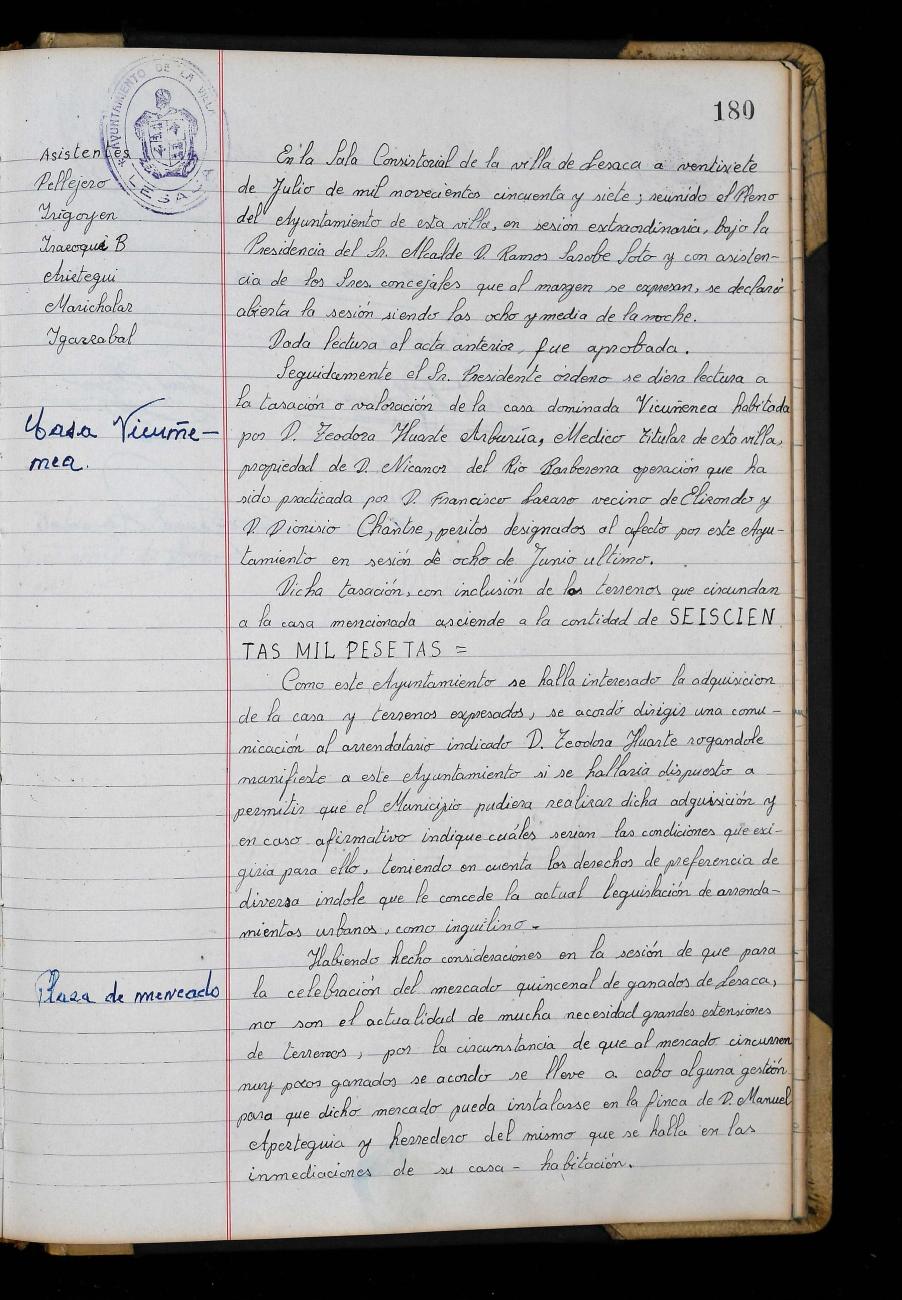 180
AYUNTAMIENTO DE LA VILLA
LESACA
Asistentes
Pellejero
Irigoyen
Iraeoqui B
Arietegui
Marichalar
Igarzabal
En la Sala Consistorial de la villa de Lesaca a ventisiete
de Julio de mil novecientos cincuenta y siete; reunido el Pleno
del Ayuntamiento de esta villa, en sesión extraordinaria, bajo la
Presidencia del Sr. Alcalde D. Ramos Sarobe Soto y con asisten-
cia de los Sres. concejales que al margen se expresan, se declaró
abierta la sesión siendo las ocho y media de la noche.
Dada lectura al acta anterior, fue aprobada.
Seguidamente el Sr. Presidente ordeno se diera lectura a
Casa Vicuñe-
nea.
la tasación o valoración de la casa dominada Vicuñenea habitada
por D. Teodora Huarte Arburúa, Medico Titular de esta villa,
propiedad de D. Nicanor del Rio Barberena operación que ha
sido practicada por D. Francisco Lazaro vecino de Elizondo y
D. Dionisio Chantre, peritos designados al afecto por este Ayu-
tamiento en sesión de ocho de Junio ultimo.
Dicha tasación, con inclusión de los terrenos que circundan
a la casa mencionada asciende a la contidad de SEISCIEN
TAS MIL PESETAS =
Como este Ayuntamiento se halla interesado la adquisicion
de la casa y terrenos expresados, se acordó dirigir una comu-
nicación al arrendatario indicado D. Teodora Huarte rogandole
manifieste a este Ayuntamiento si se hallaria dispuesto a
permitir que el Municipio pudiera realizar dicha adquisición y
en caso afirmativo indique cuáles serian las condiciones que exi-
giria para ello, teniendo en cuenta los derechos de preferencia de
diversa indole que le concede la actual leguislación de arrenda-
mientos urbanos, como inguilino.
Habiendo hecho consideraciones en la sesión de que para
Plaza de mercado
la celebración del mercado quincenal de ganados de Lesaca,
no son el actualidad de mucha necesidad grandes estensiones
de terrenos, por la circunstancia de que al mercado cincurren
muy pocos ganados se acordo se lleve a cabo alguna gestión
para que dicho mercado pueda instalarse en la finca de D. Manuel
Aperteguia y herredero del mismo que se halla en las
inmediaciones de su casa - habitación.